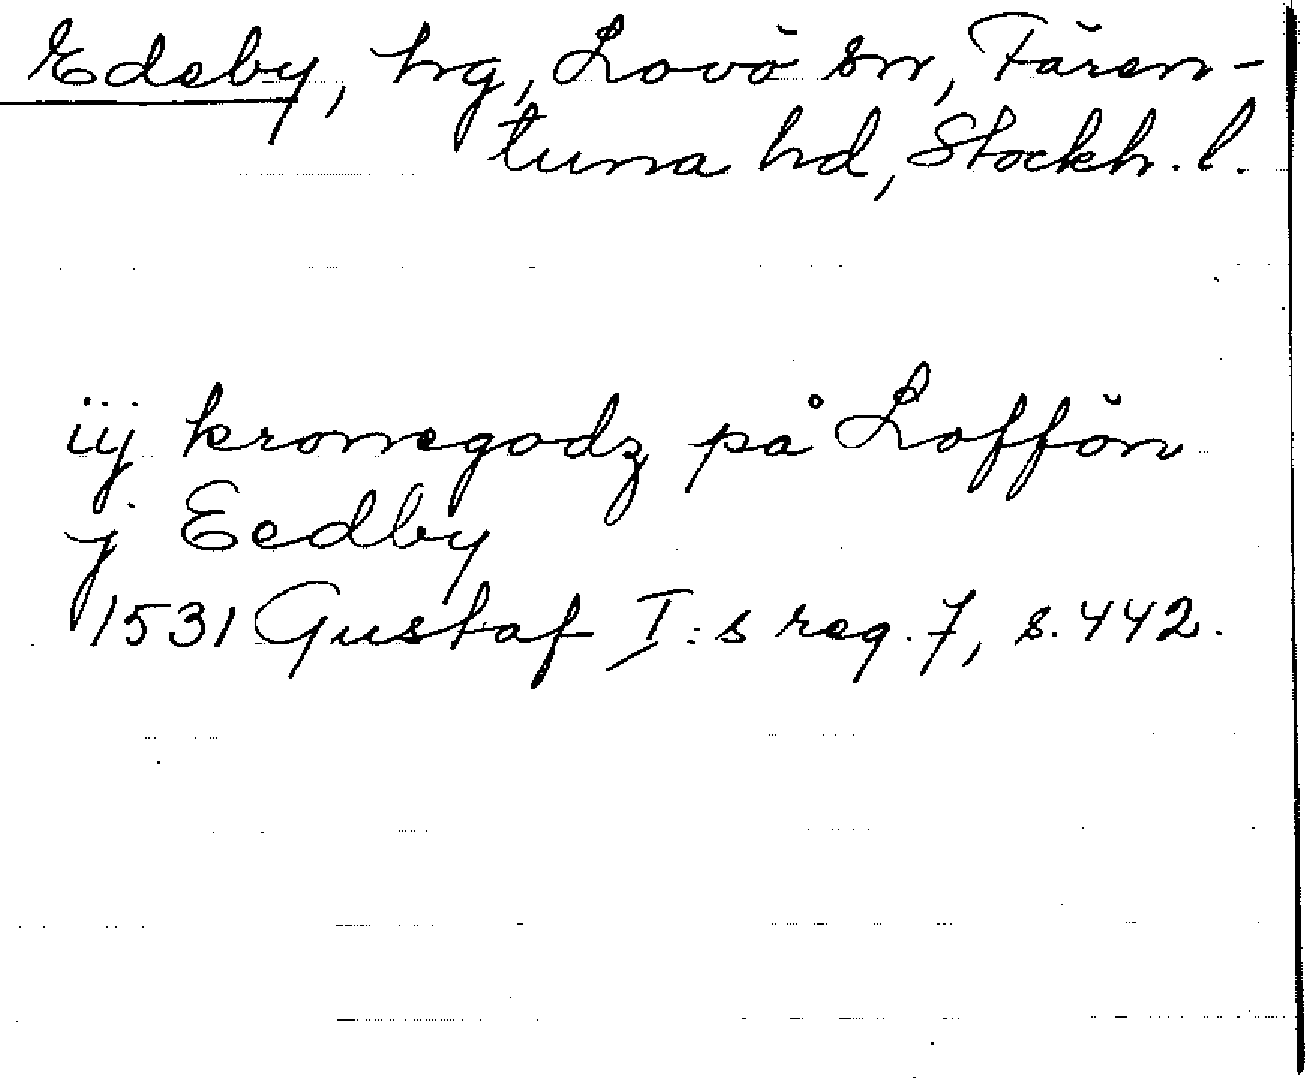 Edeby, hg, Lovö sn, Fären-
tuna hd, Stockh. l.
iij kronegodz på Loffön
j Eedby
1531 Gustaf I:s reg. 7, s. 442.